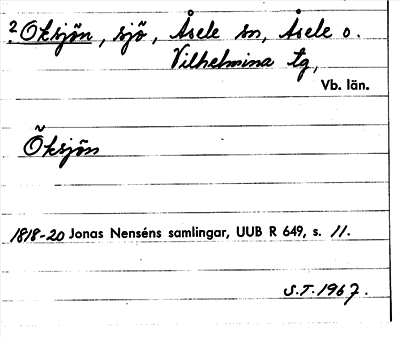 2 Oksjön, sjö, Åsele sn, Åsele o.
Vilhelmina tg,
Vb. län.
Öksjön
1818-20 Jonas Nenséns samlingar, UUB R 649, s. 11.
S.T. 1967.